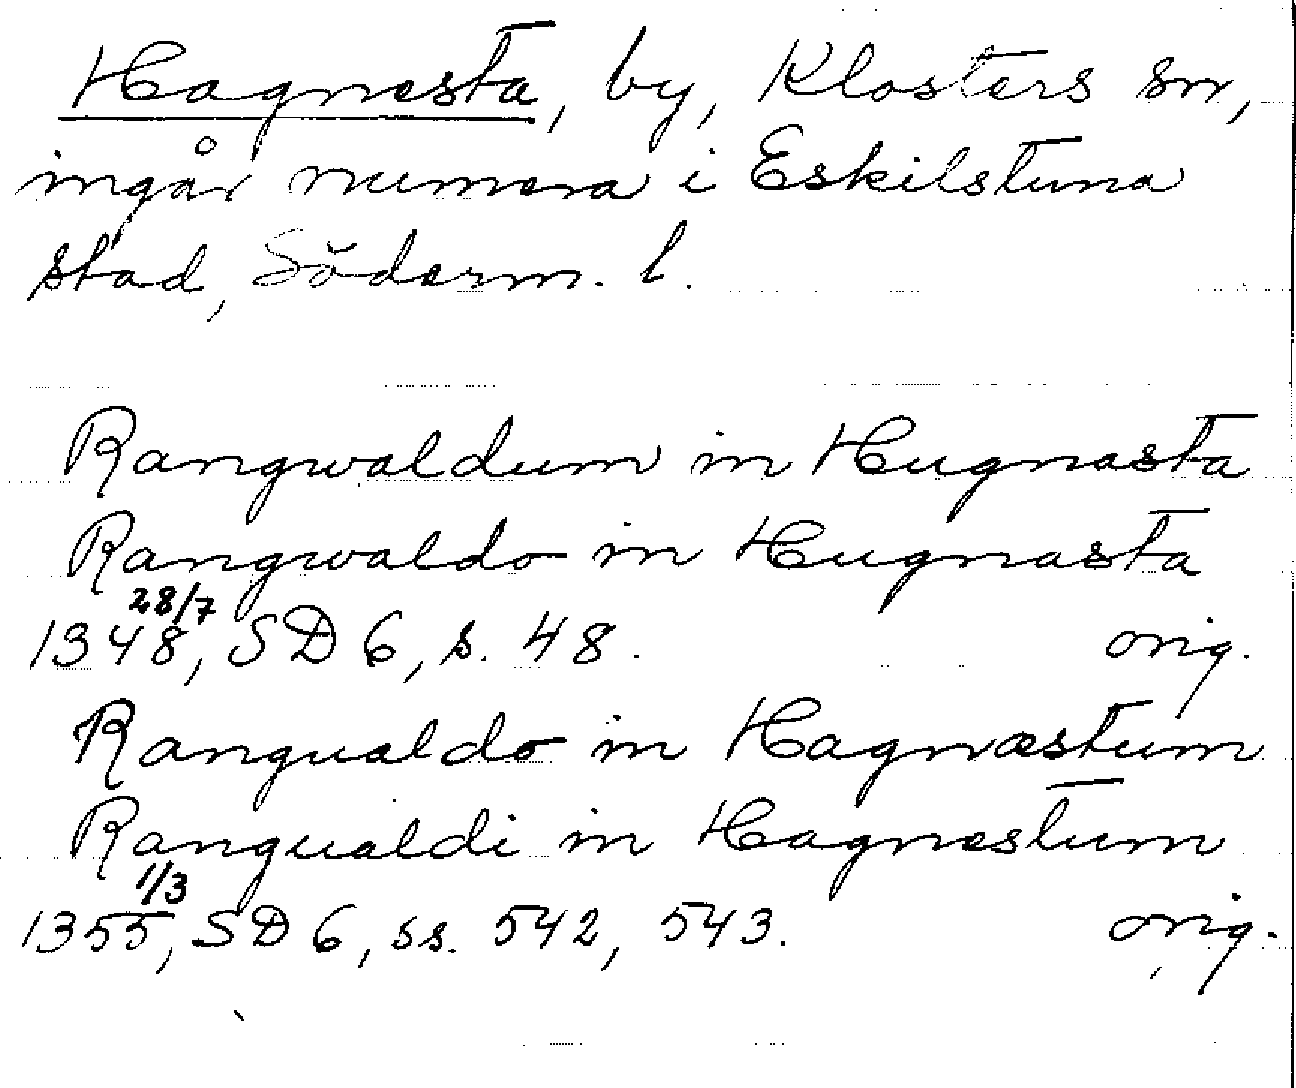 Hagnesta, by, Klosters sn,
ingår numera i Eskilstuna
stad, Söderm. l.
Rangwaldum in Hugnasta
Rangwaldo in Hugnasta
28/7
1348, SD 6, s. 48. orig.
Rangualdo in Hagnæstum
Rangualdi in Hagnestum
1/3
1355, SD 6, ss. 542, 543. orig.